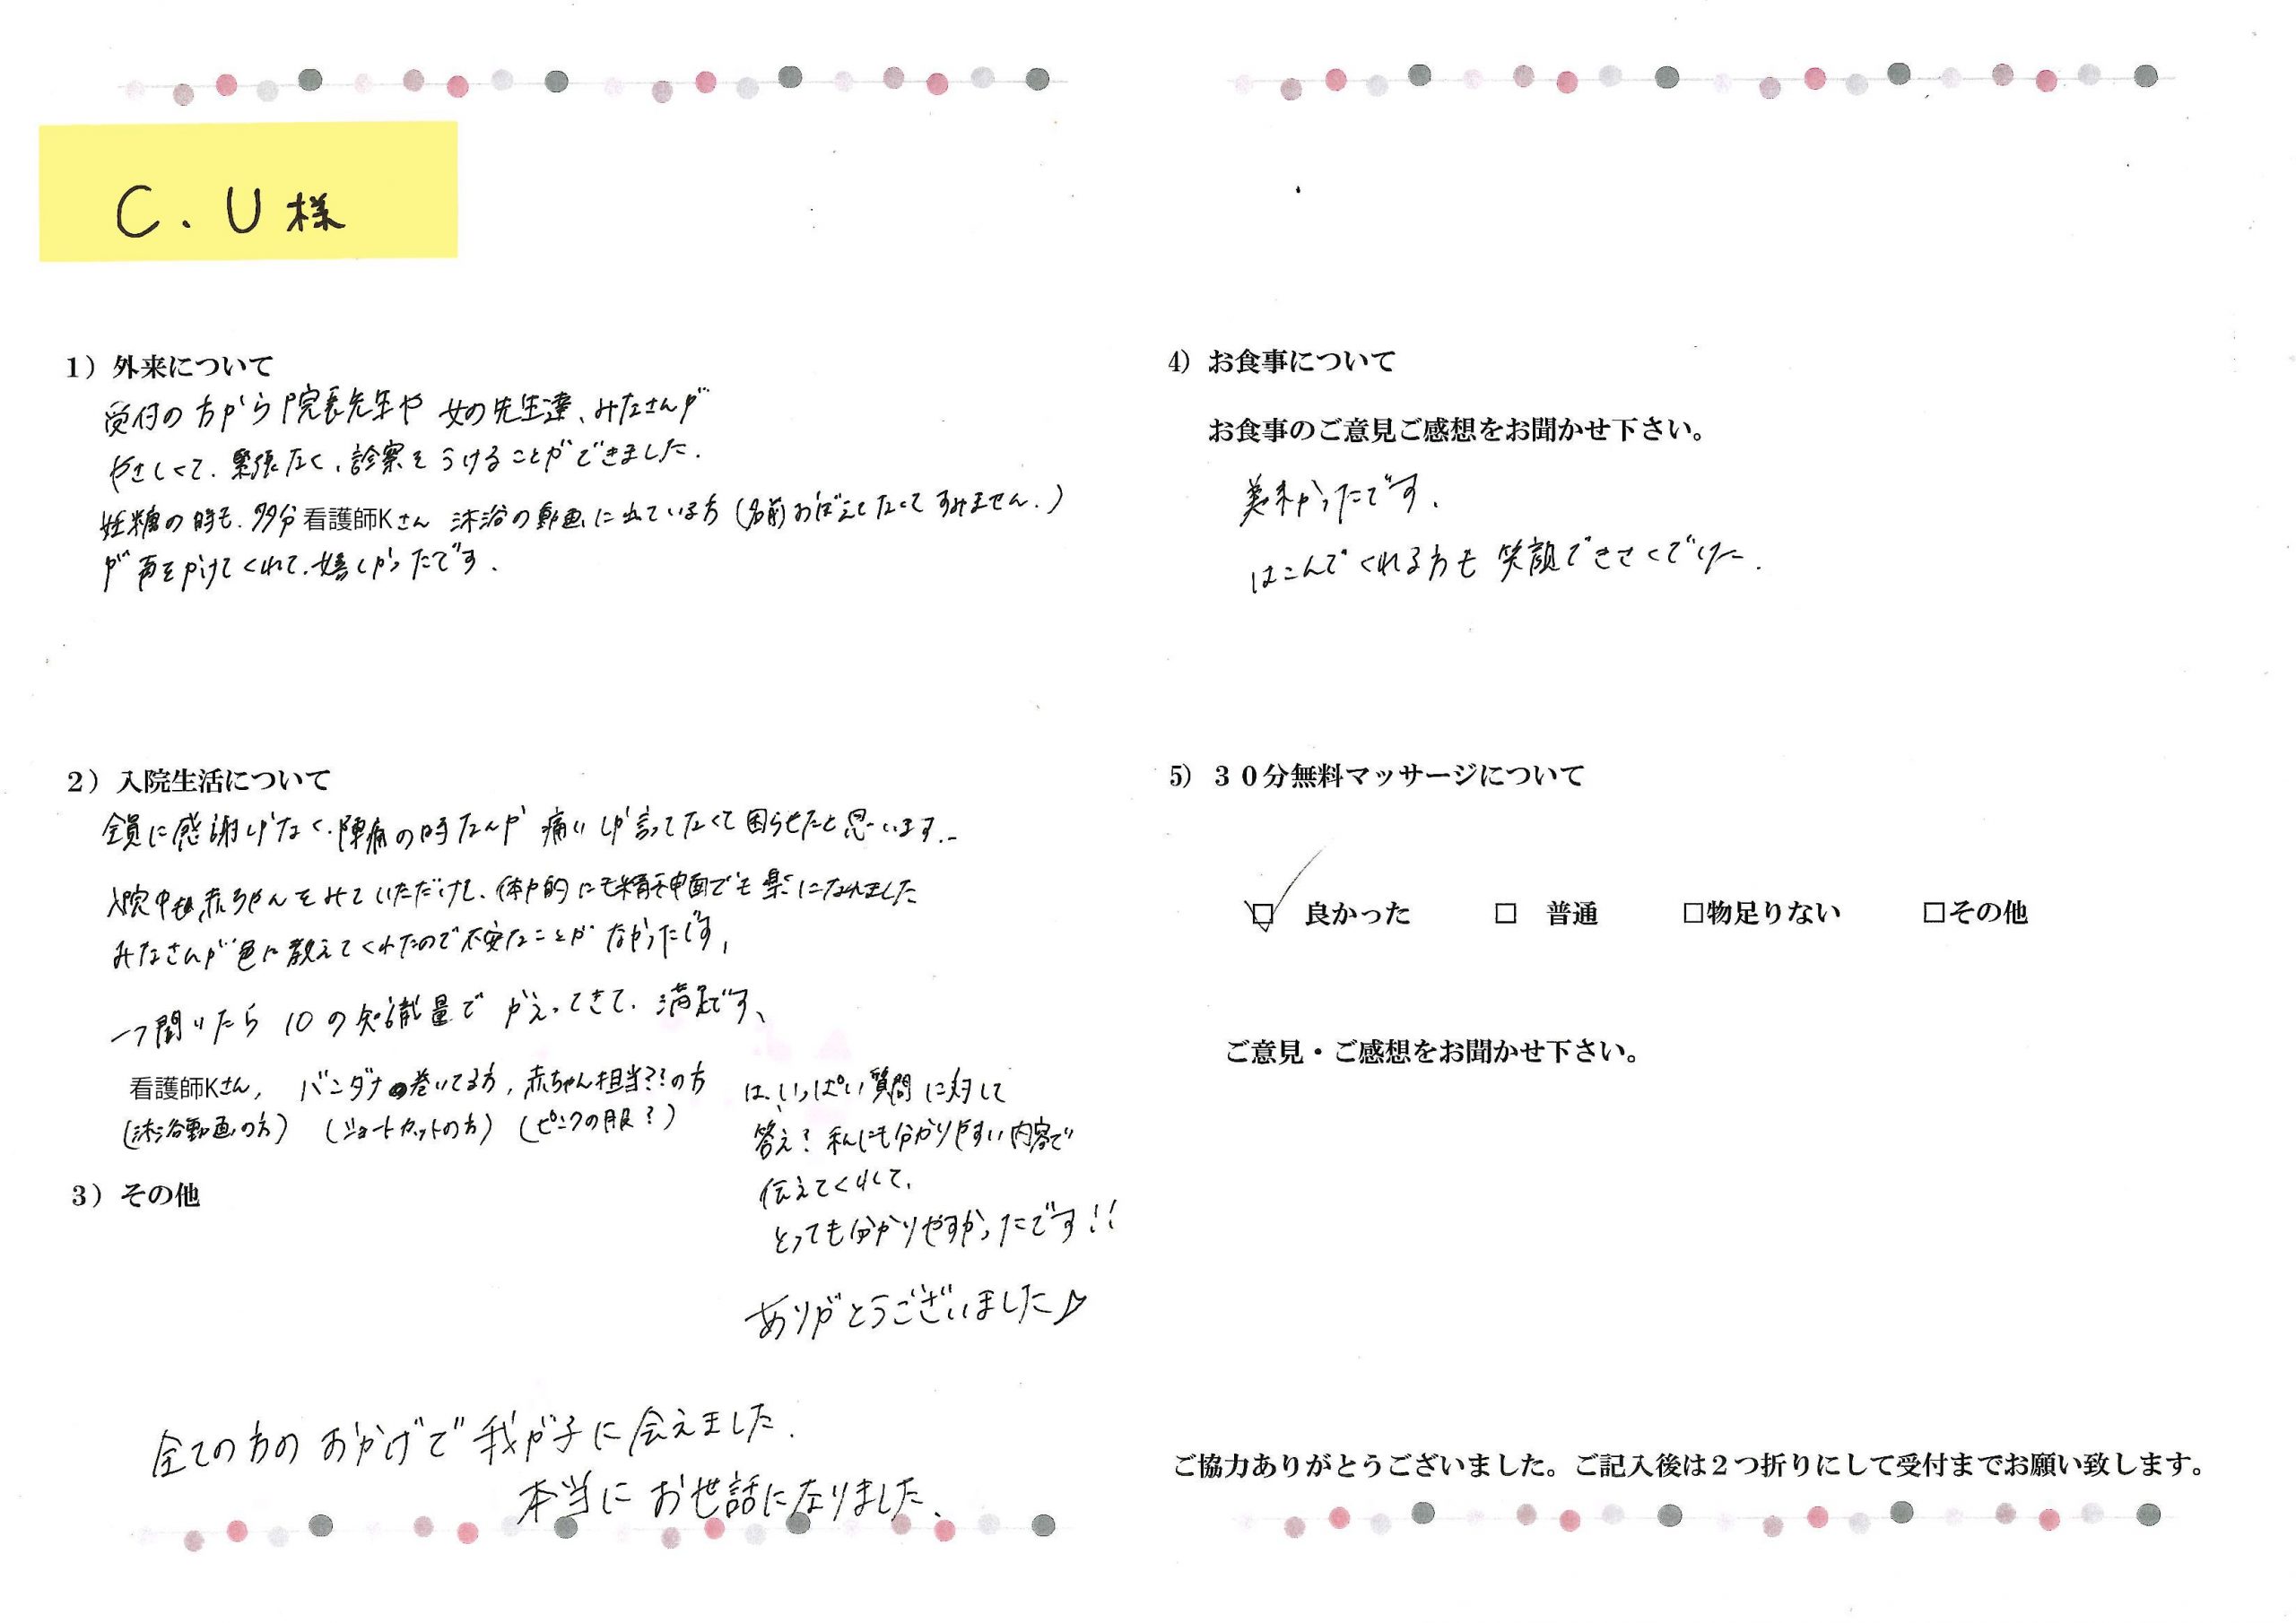 C.U様
1）外来について
受付の方から院長先生や女の先生達、みなさんが
やさしくて、緊張なく、診察をうけることができました.
妊糖の時も、多分看護師Kさん 沐浴の動画に出ている方(名前おぼえてなくてすみません.)
が声をかけてくれて、嬉しかったです.
2）入院生活について
全員に感謝しかなく、陣痛の時なんか痛いしか言ってなくて困らせたと思います..
入院中も赤ちゃんをみていただけて、体力的にも精神面でも楽になれました
みなさんが色々教えてくれたので不安なことがなかったです,
一つ聞いたら10の知識量でかえってきて、満足です、
看護師Kさん, バンダナの巻いてる方, 赤ちゃん担当??の方
(沐浴動画の方) (ショートカットの方) (ピンクの服?)
は、いっぱい質問に対して
答え?私にも分かりやすい内容で
伝えてくれて、
とっても分かりやすかったです!!
ありがとうございました♪
3）その他
全ての方のおかげで我が子に会えました.
本当にお世話になりました、
4）お食事について
お食事のご意見ご感想をお聞かせ下さい。
美味かったです.
はこんでくれる方も笑顔できさくでした.
5）３０分無料マッサージについて
☑ 良かった □ 普通 □物足りない □その他
ご意見・ご感想をお聞かせ下さい。
ご協力ありがとうございました。ご記入後は２つ折りにして受付までお願い致します。